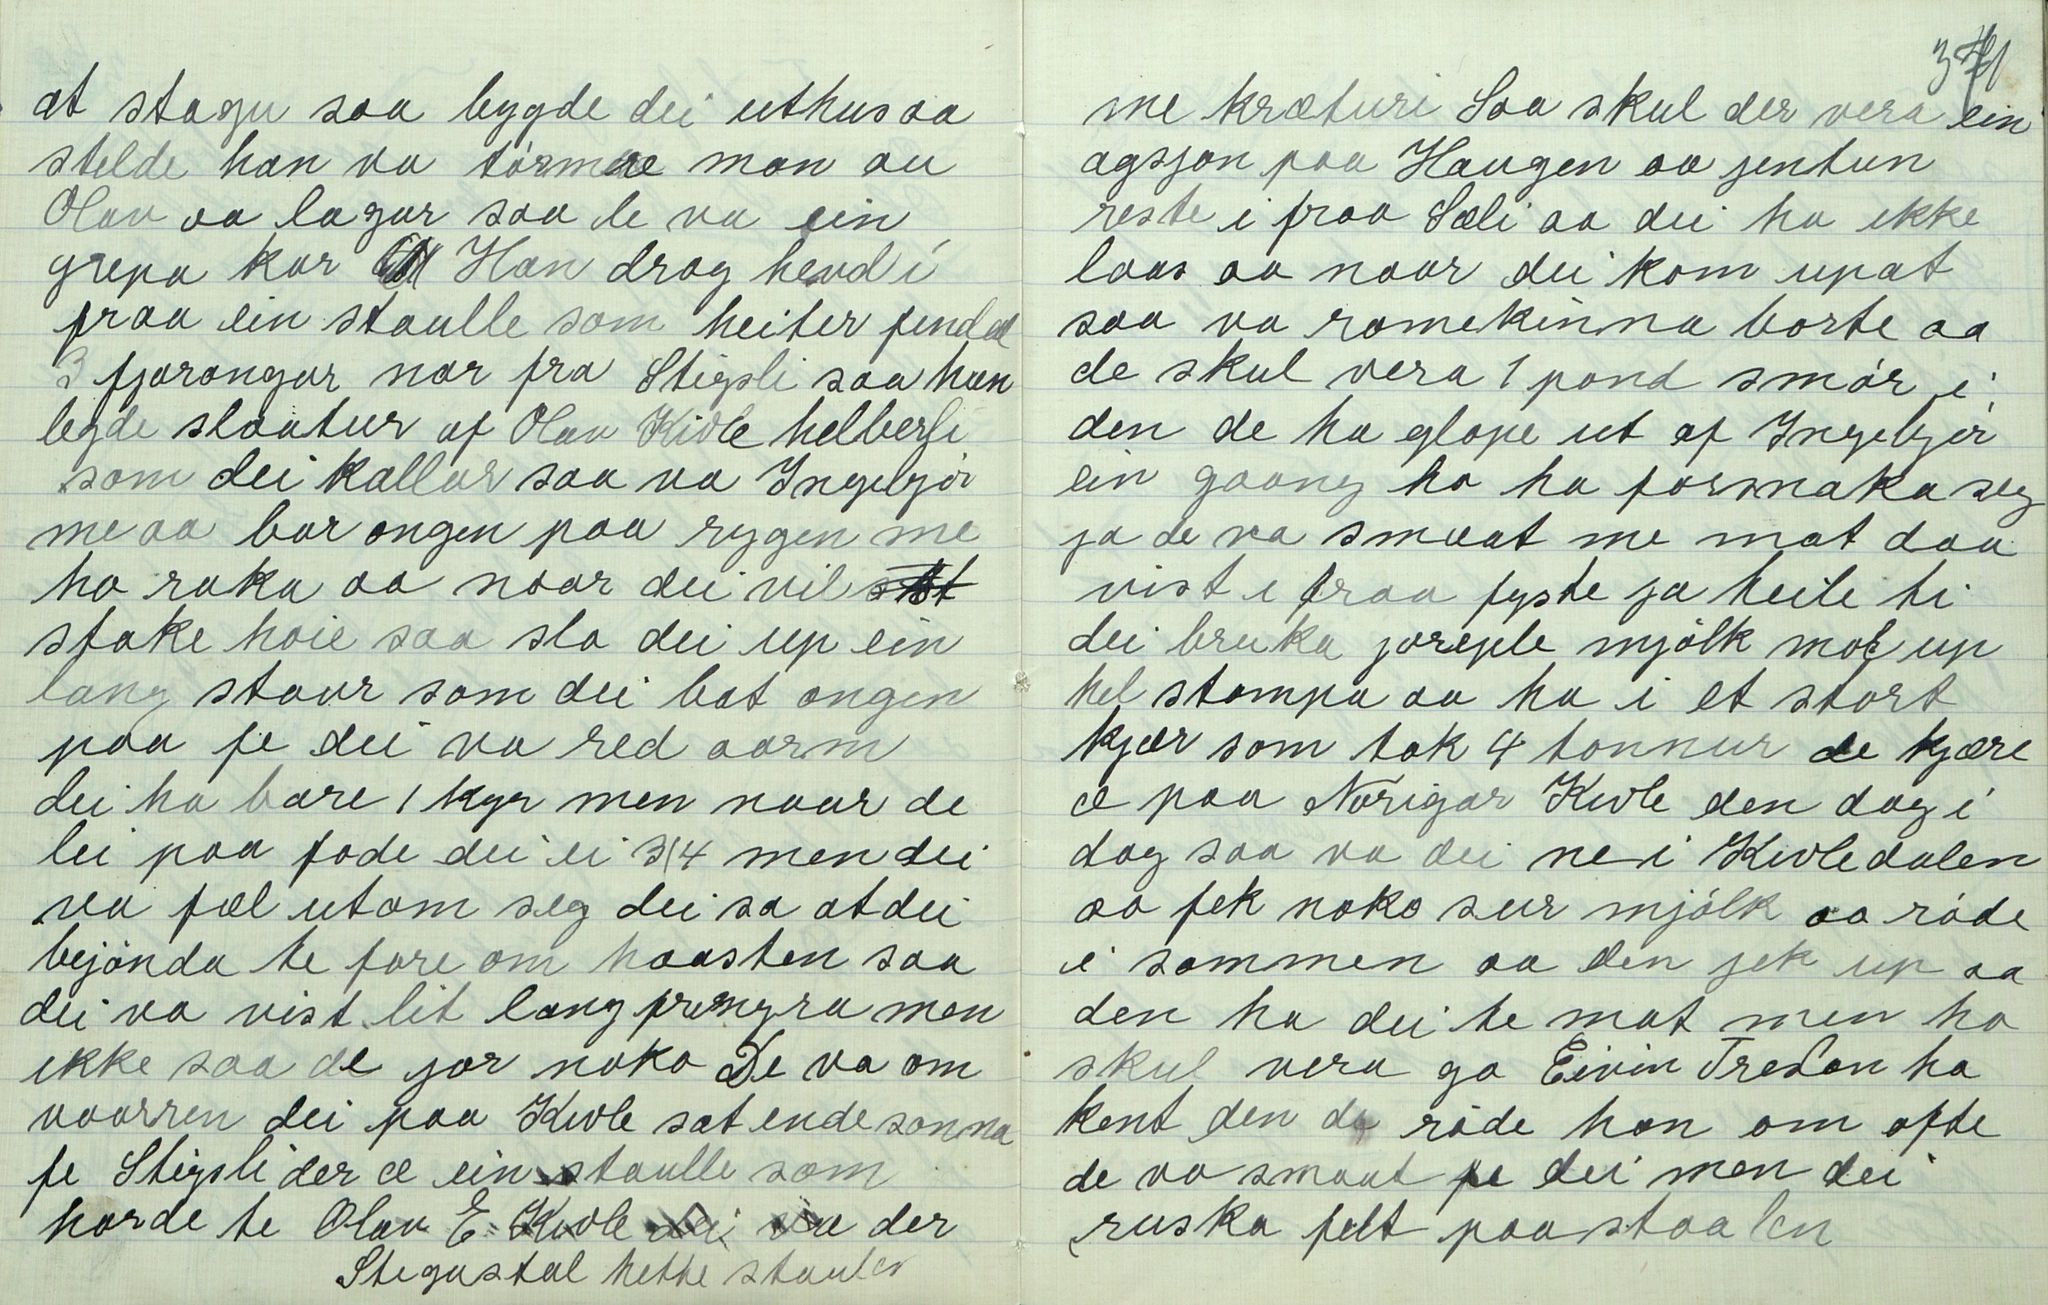 at stogu saa bygde dei uthus aa
stelde han va tórmre man au
Olav aa lagar saa de va ein
grepa kar Han drog hevd i
fraa ein staulle som heiter
3 fjorongar nor fra Stigsli saa han
legde slaatur af Olav Kivle helbersi
som dei kallar saa va Ingebjór
me aa bar ongen paa rygen me
ho raka aa naar dei vil
stake hoie saa slo dei up ein
lang staur som dei bat ongen
paa fe dei va red aarm
dei ha bare 1 kyr men naar de
lei paa fode dei ei 3/4 men dei
va fæl utom seg dei sa at dei
bejónda te fare om haasten saa
dei va vist lit langfrengra men
ikke saa de gor noko De va om
vaarren dei paa Kivle sat ende sonna
fe Stigsli der æ ein staulle som
horde te Olav E Kivle der
Stegastal hette staulen
371
me kræturi Saa skul der vera ein
agsjon paa Haugen aa jentun
reste i fraa Sæli aa dei ha ikke
laas aa naar dei kom upat
saa va romekinna borte aa
de skul vera 1 pond smór i
den de ha glope ut af Ingebjór
ein gaang ho ha formaka seg
ja de va smaat me mat daa
vist i fraa fyste ja heile ti
dei bruka joreple mjólk mol up
hel stompa aa ha i et stort
kjær som tok 4 tonnur de kjære
æ paa Norigar Kivle den dag i
dag saa va dei ne i Kivledalen
aa fek noko sur mjólk aa róde
i sommen aa den jek up aa
den ha dei te mat men ho
skul vera go Eivin Tredon ha
kent den de róde han om ofte
de va smaat fe dei men dei
ruska felt paa staalen